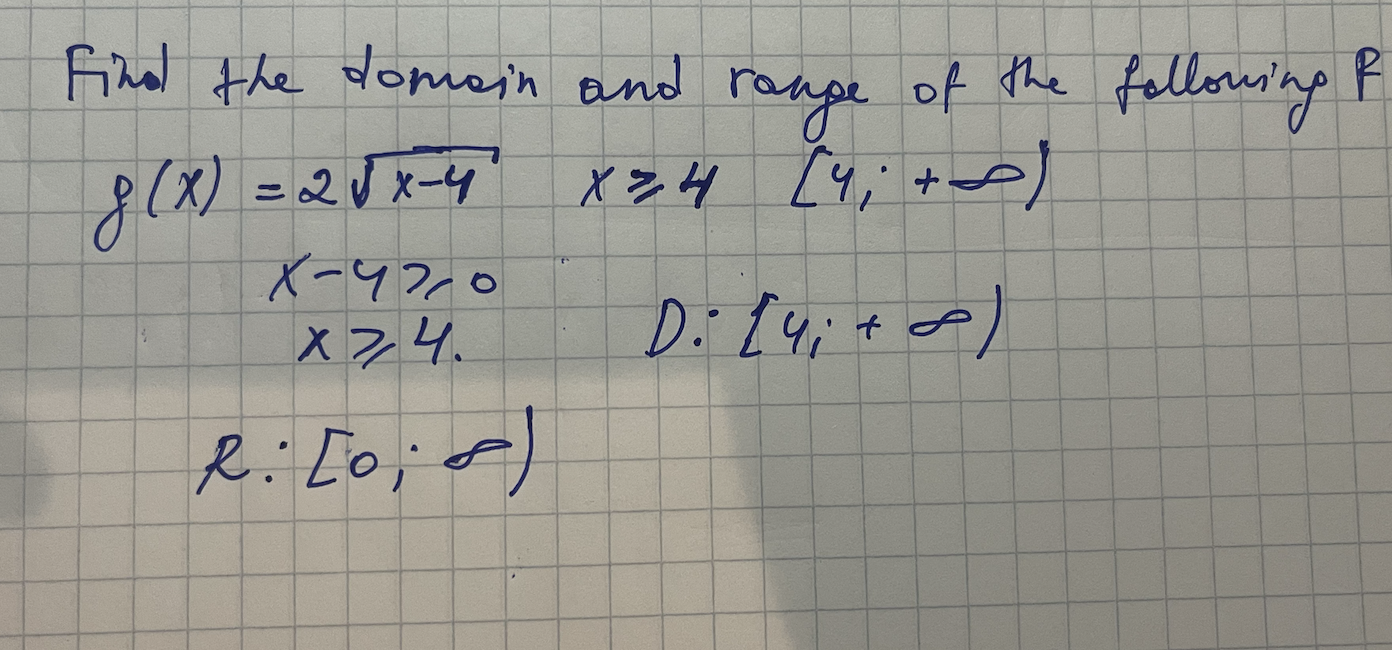 Find the domain and range of the following F
g(x) = 2√(x-4) x ≥ 4 [4; +∞)
x-4 ≥ 0
x ≥ 4. D: [4; + ∞)
R: [0; ∞)